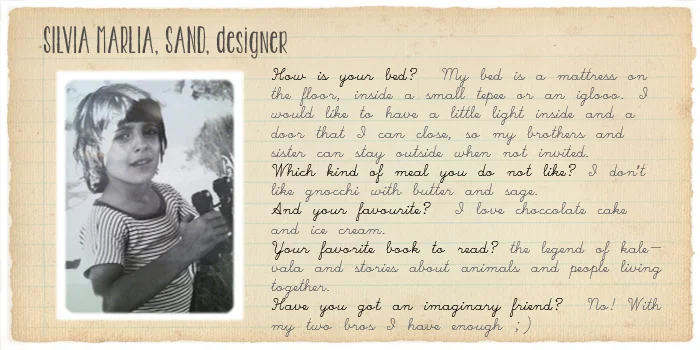 SILVIA MARLIA, SAND, designer
How is your bed? My bed is a mattress on
the floor, inside a small tepee or an iglooo. I
would like to have a little light inside and a
door that I can close, so my brothers and
sister can stay outside when not invited.
Which kind of meal you do not like? I don't
like gnocchi with butter and sage.
And your favourite? I love choccolate cake
and ice cream.
Your favorite book to read? the legend of kale-
vala and stories about animals and people living
together.
Have you got an imaginary friend? No! With
my two bros I have enough ;)